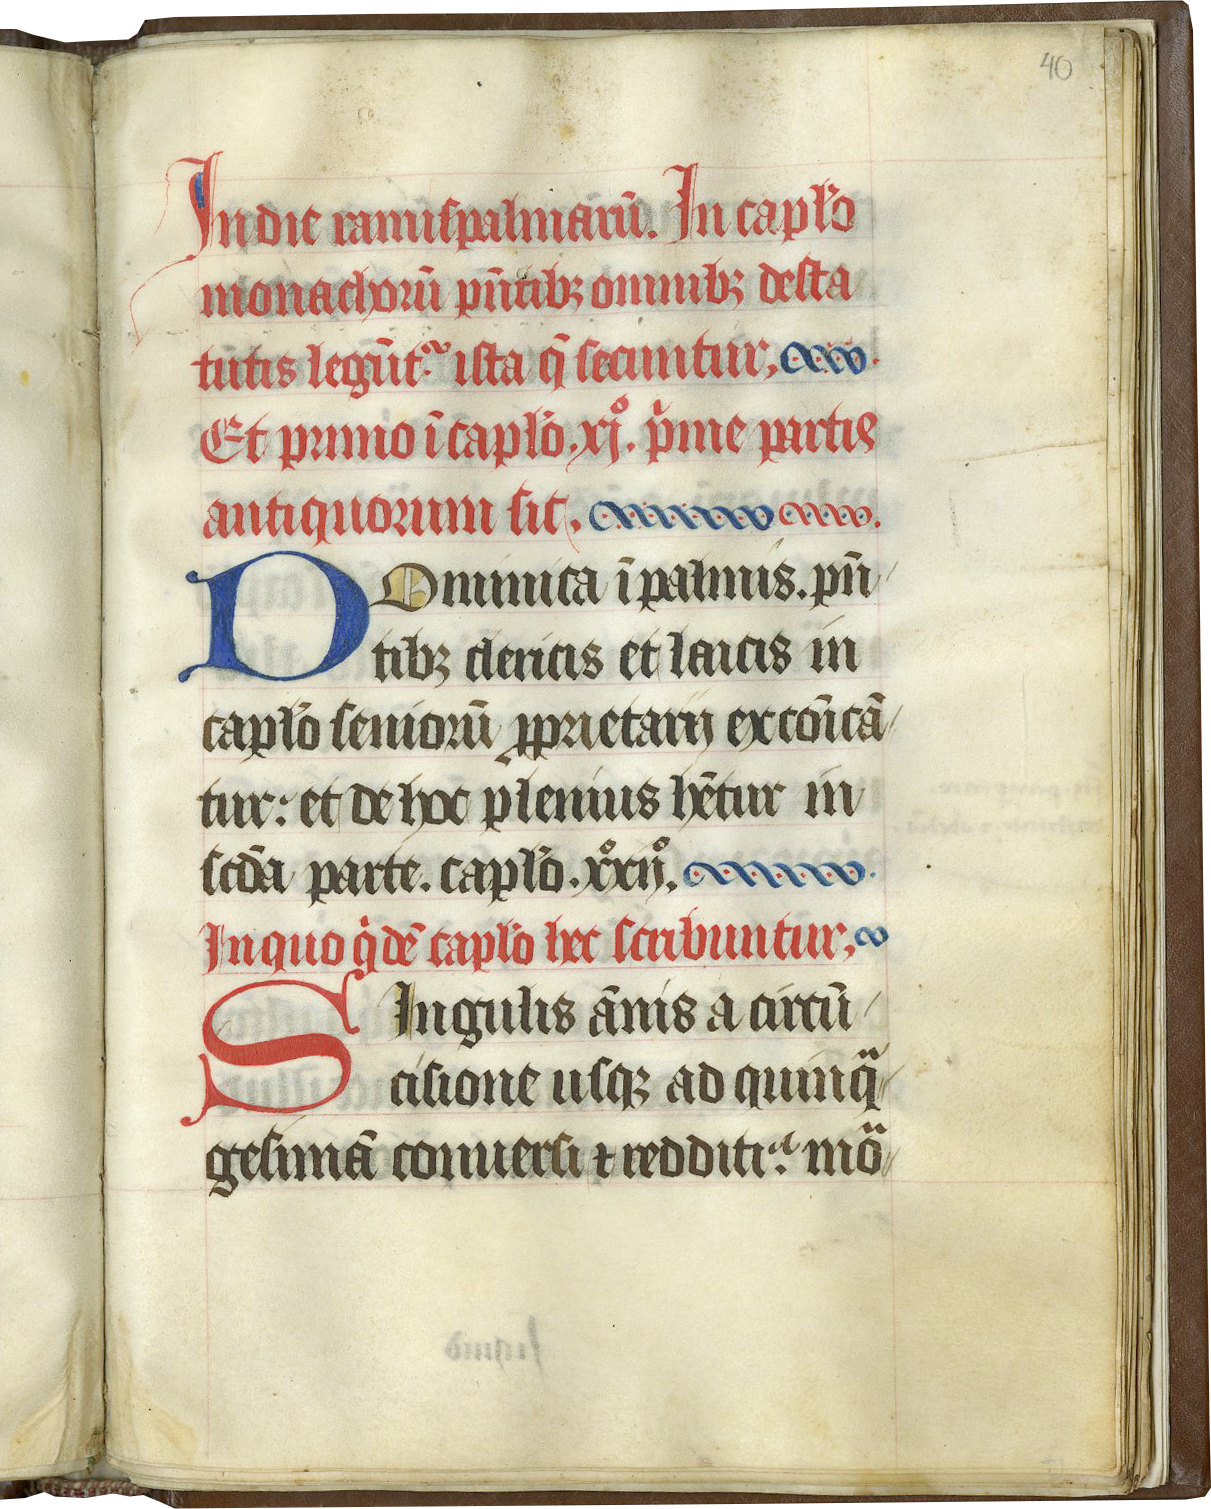 40
In die ramiſpalmarū. In capło
monachorū pñtibꝫ omnibꝫ deſta
tutis legūt᷑ iſta q̄ ſecuntur,
Et primo ī capło .xjº. p̄me partis
antiquorum ſic.
DOminica ī palmis. pñ
tibꝫ clericis et laicis in
capło ſeniorū ꝓprietarij excōicā
tur: et de hoc plenius hētur in
ſcđa parte. capło .xxijº.
In quo qͥdē capło hec ſcribuntur,
SIngulis ānis a circū
ciſione uſqꝫ ad quinqᷓ
geſimā conuerſi ⁊ redditi: mōᷓ